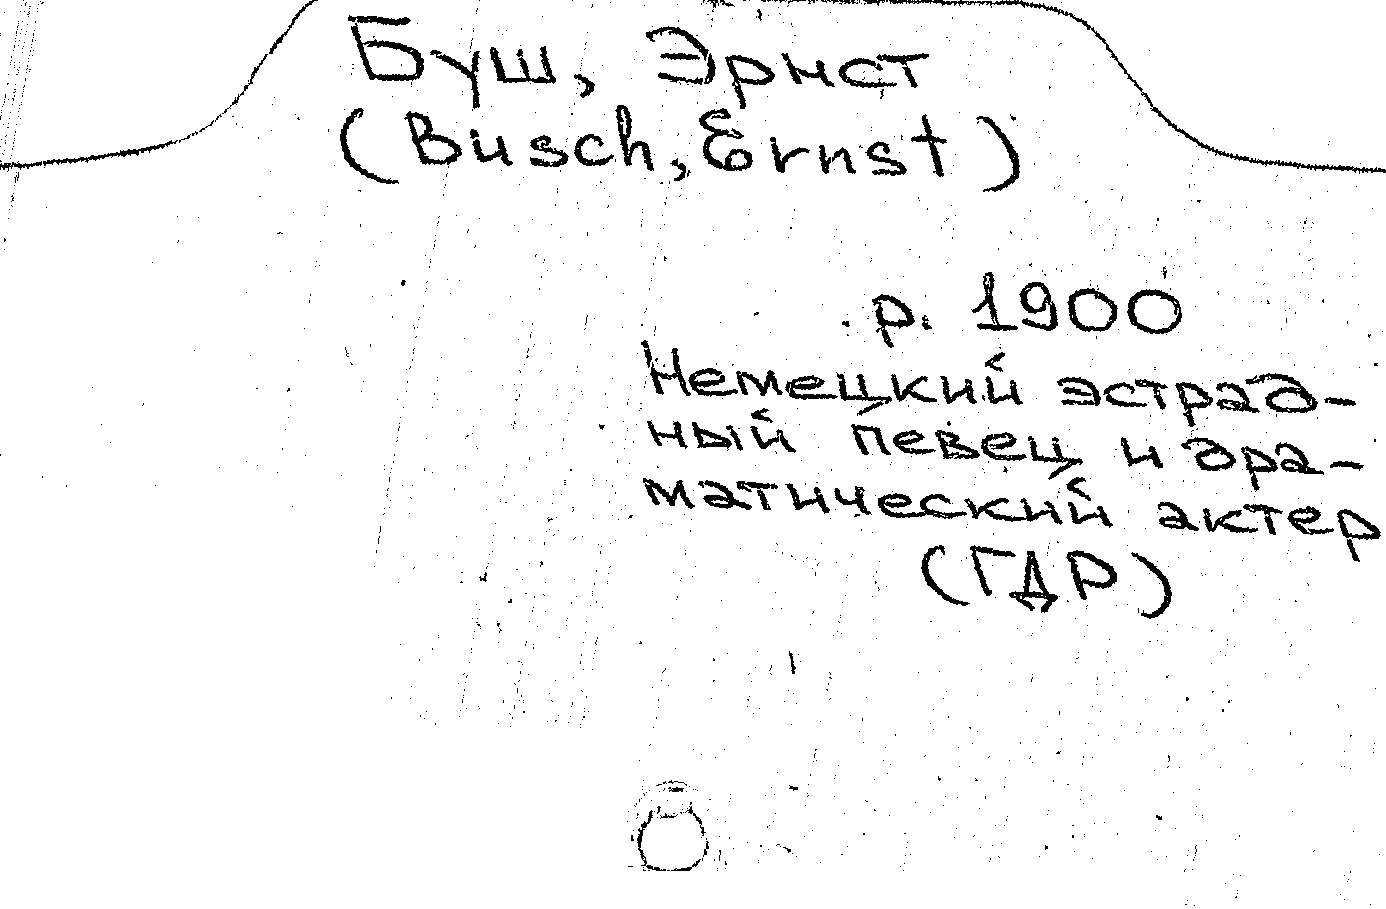 Буш, Эрнст
(Busch, Ernst)
р. 1900
Немецкий эстрад-
ный певец и дра-
матический актер
(ГДР)